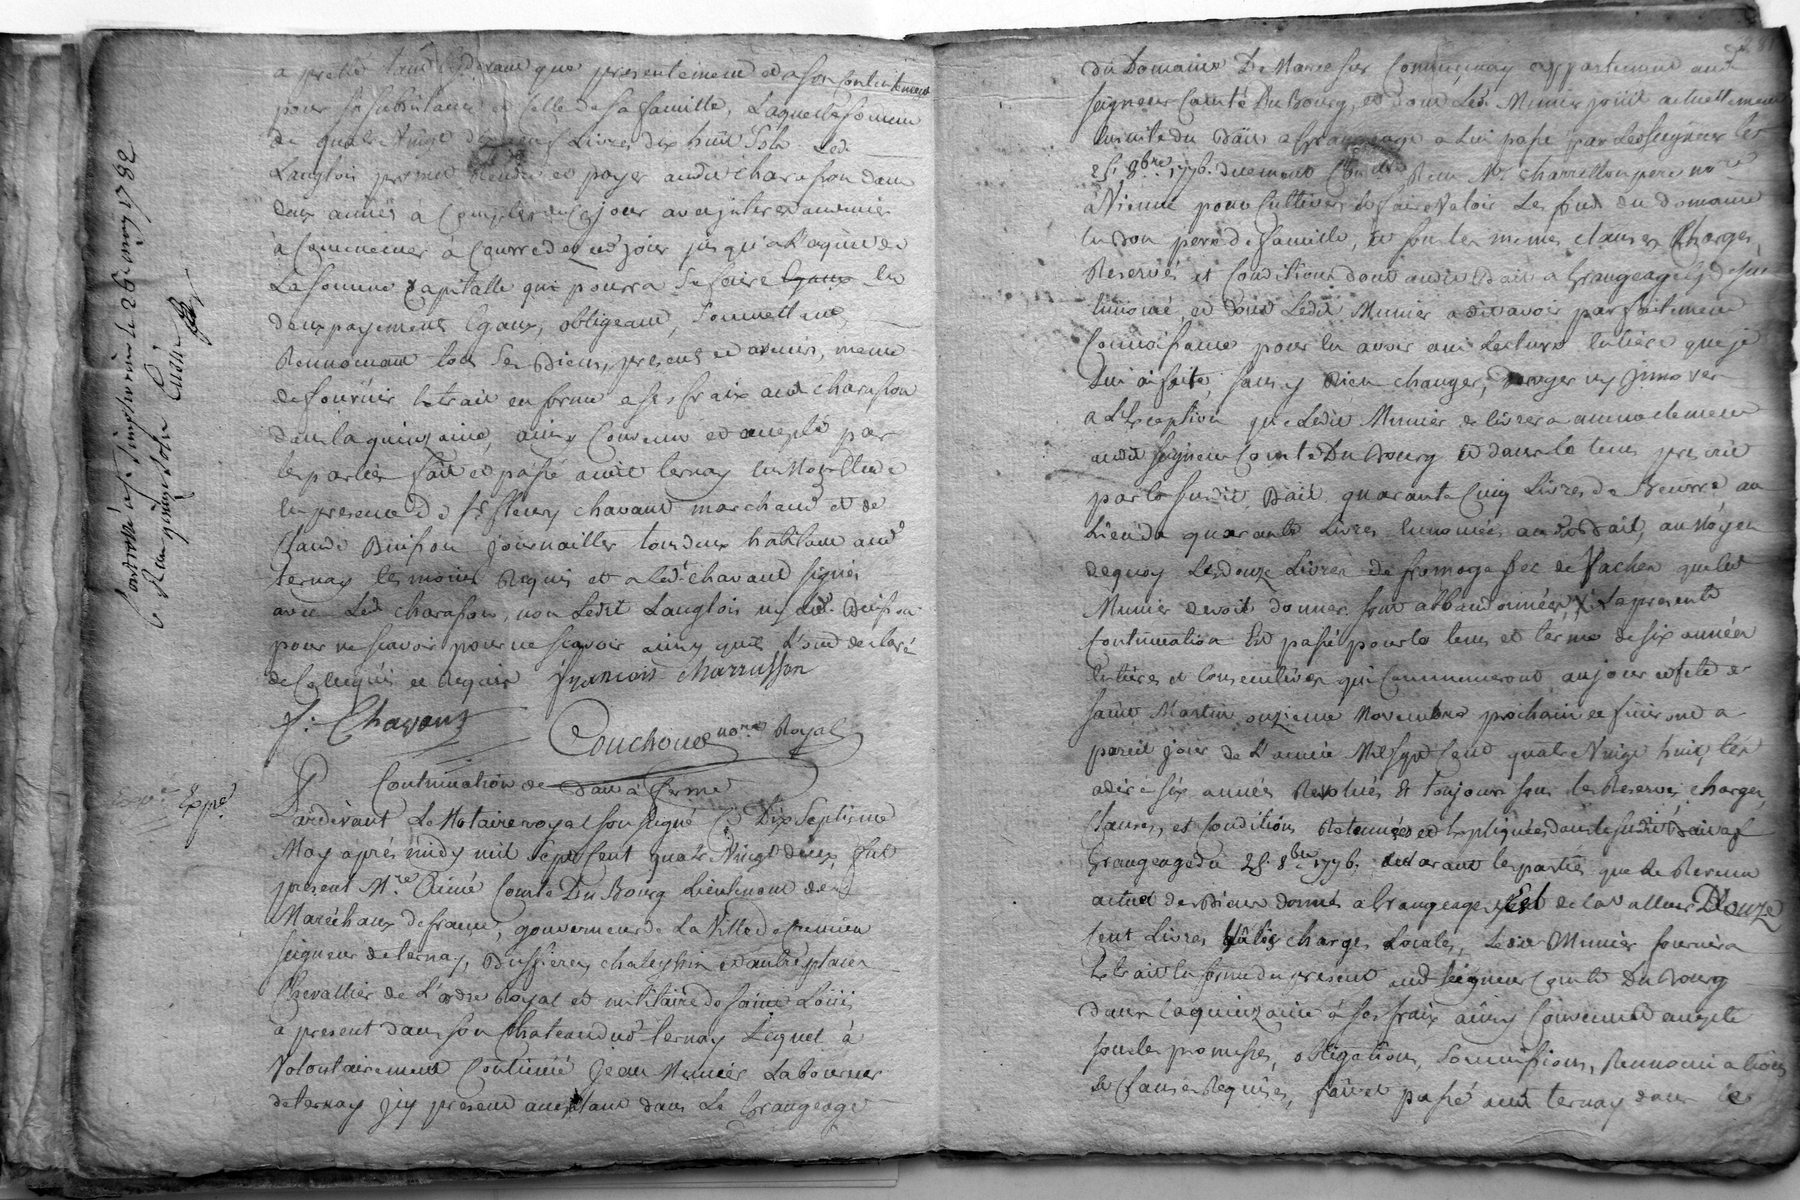 a preté tant cydevant que presentement et a son contentement
pour sa subsistance et celle de sa famille, Laquelle somme
de quatre Vingt dix neuf Livres dix huit Sols Led
Langlois promet Rendre et payer audit charasson dans
deux années à Compter de ce jour avec interets au denier
à Commencer à Courre de ce jour jusqu'a
La somme Capitalle qui pourra se faire Egaux en
deux payements Egaux, obligeant, Soumettant,
Rennonçant tous ses Biens, presents et avenir, meme
de fournir Extrait en forme a ses fraix aud charasson
dans la quinzaine, ainsy Convenu et accepté par
les parties fait et passé audit ternay en
en presence de Sr fleury chavant marchand et de
Claude Buisson journaillier tous deux habitant aud
ternay temoins Requis et a Led. chavand signés
avec Led charasson, non Ledit Langlois ny Led. Buisson
pour ne scavoir pour ne scavoir ainsy quils L'ont declaré
de ce Enquis et Requis françois charrasson
f: Chavant
Couchoud nore Royal
Controllé a St simphorien le 26e may 1782
Reçu quinze sols
Expé
Continuation de Bail à ferme
Pardevant Le Notaire royal soussigné Ce Dix Septieme
May après midy mil Sept Cent quatre Vingt deux, fut
present Mre Aimé Comte Du Bourg Lieutenant de
Maréchaux de france, gouverneur de La Ville de Cremieu
seigneur de ternay, Bussieres, chaleyssin et autre places
Chevallier de L'ordre Royal et militaire de saint Louis
a present dans son Chateau dud ternay Lequel à
Volontairement Continué Jean Munier Laboureur
de ternay icy present acceptant dans Le Grangeage
du Domaine De Maree sur Communay appartenant aud
seigneur Comte Du Bourg, et dont Led. Munier jouit actuellement
ensuite du Bail a Grangeage a Lui passé par Led seigneur les
25. 8bre 1776. Reçu Me Charreton pere nore
à Vienne pour Cultiver et faire Valoir Les fonds du domaine
en Bon pere de famille, et sous les memes clauses Charges,
Reserves et Conditions dont audit Bail a Grangeage cy dessus
ennoncé, et dont Ledit Munier a dit avoir parfaitement
Connoissance pour en avoir eu Lecture entiere que je
Lui ai faite, sans y Rien changer, deroger ny innover
a L'Exception que Ledit Munier delivrera annuelement
audit seigneur Comte Du Bourg et dans le tems prescrit
par le susdit Bail, quarante Cinq Livres de Beurre au
Lieu de quarante Livres ennoncées audit Bail, au Moyen
de quoy Les douze Livres de fromage sec de Vaches que led
Munier devoit donner sont abbandonnées, La presente
Continuation Est passé pour le tems et terme de six années
entieres et Consecutives qui Commenceront au jour et fete de
saint Martin onzieme Novembre prochain et finiront a
pareil jour de L'année Mil Sept Cent quatre Vingt huit, c'est
adire six années Revolues Et toujours sous les Reserves, charges,
Clauses, et Conditions Retenues et Expliquées dans le susdit Bail a
Grangeage du 25. 8bre 1776. declarant les parties que le Revenu
actuel des Biens donnés a Grangeage Est de la Valleur D'ouze
Cent Livres charges Locales, Ledit Munier fournira
Extrait en forme du present aud seigneur Comte Du Bourg
dans la quinzaine à ses fraix ainsy Convenu et accepté
sous les promesses, obligations, Soumissions, Rennonciations
et Clauses Requises, fait et passé aud ternay dans le